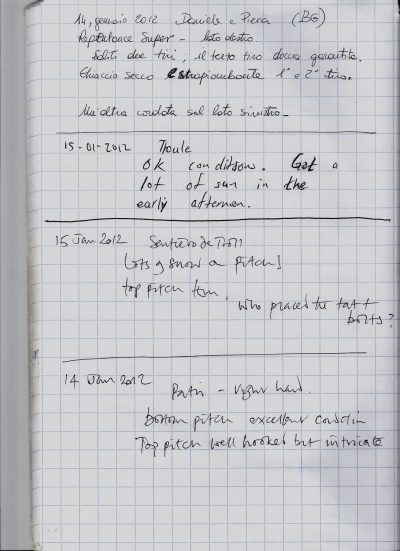 14, gennaio 2012 Daniele e Piera (BG)
Repentance Super - lato destro.
Soliti due tiri; il terzo tiro doccia garantita.
Ghiaccio secco estrapiombante 1° e 2° tiro.
Un'altra cordata sul lato sinistro -
15-01-2012 Thoule
OK condition. Got a
lot of sun in the
early afternoon.
15 Jan 2012 Sentiero de Troll
Lots of snow on pitch 1
top pitch thin. Who placed the tat +
bolts?
14 Jan 2012
Patri - right hand.
bottom pitch excellent condition
Top pitch well hooked but intricate